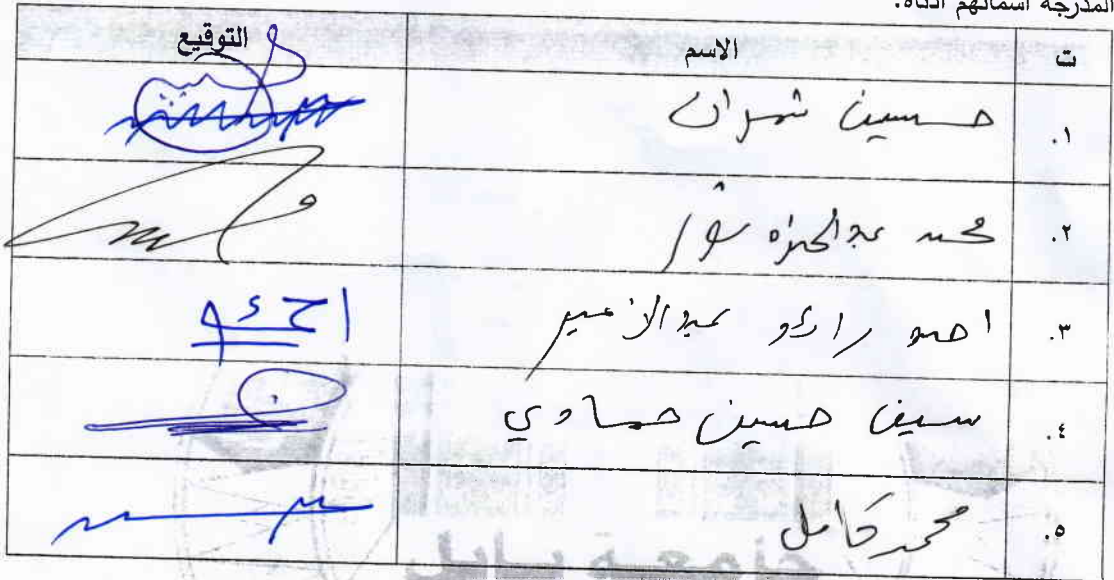 المدرجة اسمائهم ادناه.
ت الاسم التوقيع
١. حسين شمران
٢. محمد عبدالحمزه
٣. احمد رائد عبدالامير
٤. سيف حسين حمادي
٥. محمد كامل
جامعة بابل